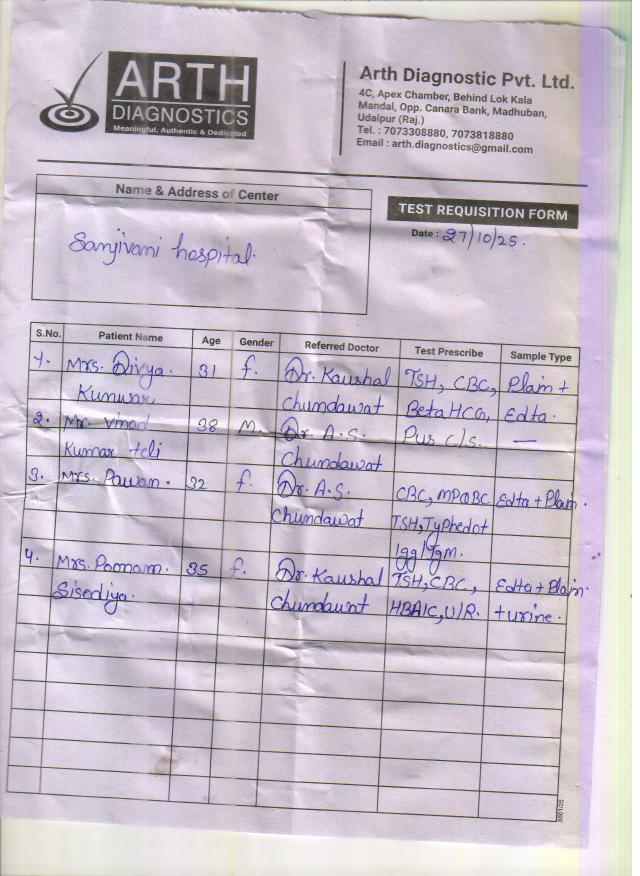 ARTH
DIAGNOSTICS
Meaningful, Authentic & Dedicated
Arth Diagnostic Pvt. Ltd.
4C, Apex Chamber, Behind Lok Kala
Mandal, Opp. Canara Bank, Madhuban,
Udaipur (Raj.)
Tel. : 7073308880, 7073818880
Email : arth.diagnostics@gmail.com
Name & Address of Center
Sanjivani hospital.
TEST REQUISITION FORM
Date : 27/10/25.
S.No. Patient Name Age Gender Referred Doctor Test Prescribe Sample Type
1. Mrs. Divya. 31 f. Dr. Kaushal TSH, CBC, Plain +
Kunwar chundawat Beta HCG, Edta.
2. Mr. Vinod 38 M. Dr. A.S. Pus c/s. —
Kumar teli Chundawat
3. Mrs. Pawan. 32 f. Dr. A.S. CBC, MP@BC Edta + Plain.
Chundawat TSH, Typhedot
Igg/Igm.
4. Mrs. Poonam. 35 f. Dr. Kaushal TSH, CBC, Edta + Plain.
Sisodiya. chundawat HBA1C, U/R. + urine.